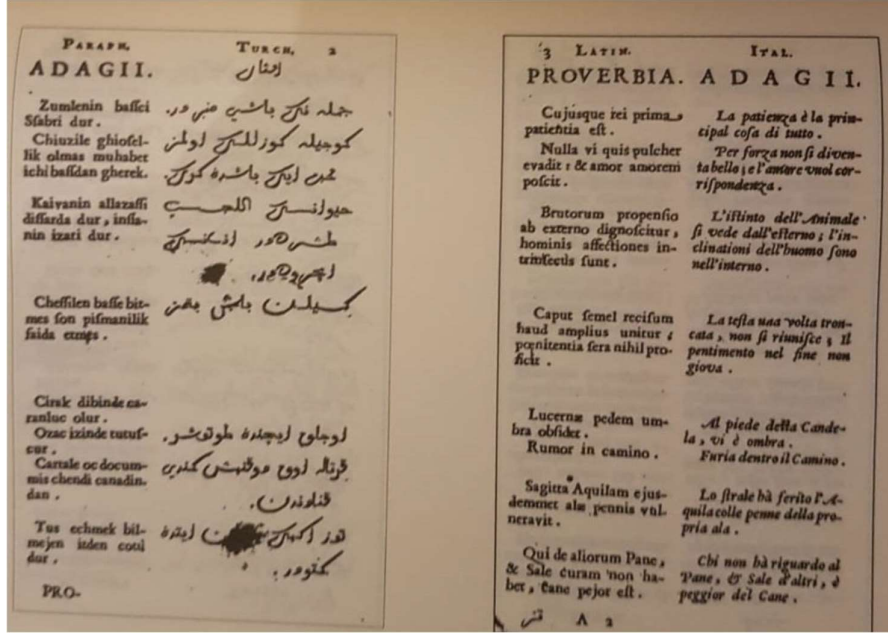 PARAPH.
ADAGII.
Zumlenin bassci
Ssabri dur.
Chiuzile ghiosel-
lik olmas muhabet
ichi bassdan gherek.
Kaivanin allazassi
dissarda dur, inssa-
nin izari dur.
Chessilen basse bit-
mes son pismanilik
faida etmes.
Cirak dibinde ca-
ranluc olur.
Ozac izinde tutuf-
cur.
Cartale oc docum-
mis chendi canadin.
dan.
Tus echmek bil-
mejen itden cotu
dur.
PRO-
TURCH. 2
جمله نك باشي صبر در.
كوجيله كوزللك اولمز
باشدن كرك.
كسيلن باش بتمز
اوجاق ايچنده طوتشر.
قرتاله اوق طوقنمش كندي
قنادندن.
كتودر.
3 LATIN.
PROVERBIA.
Cujusque rei prima
patientia est.
Nulla vi quis pulcher
evadit: & amor amorem
poscit.
Brutorum propensio
ab externo dignoscitur,
hominis affectiones in-
trinsecus sunt.
Caput semel recisum
haud amplius unitur;
pœnitentia sera nihil pro-
ficit.
Lucernæ pedem um-
bra obsidet.
Rumor in camino.
Sagitta Aquilam ejus-
demmet alæ pennis vul-
neravit.
Qui de aliorum Pane,
& Sale curam non ha-
bet, Cane pejor est.
A 2
ITAL.
ADAGII.
La patienza è la prin-
cipal cosa di tutto.
Per forza non si diven-
ta bello; e l'amore vuol cor-
rispondenza.
L'istinto dell'Animale
si vede dall'esterno; l'in-
clinationi dell'huomo sono
nell'interno.
La testa una volta tron-
cata, non si riunisce; Il
pentimento nel fine non
giova.
Al piede della Cande-
la, vi è ombra.
Furia dentro il Camino.
Lo strale hà ferito l'A-
quila colle penne della pro-
pria ala.
Chi non hà riguardo al
Pane, & Sale d'altri, è
peggior del Cane.